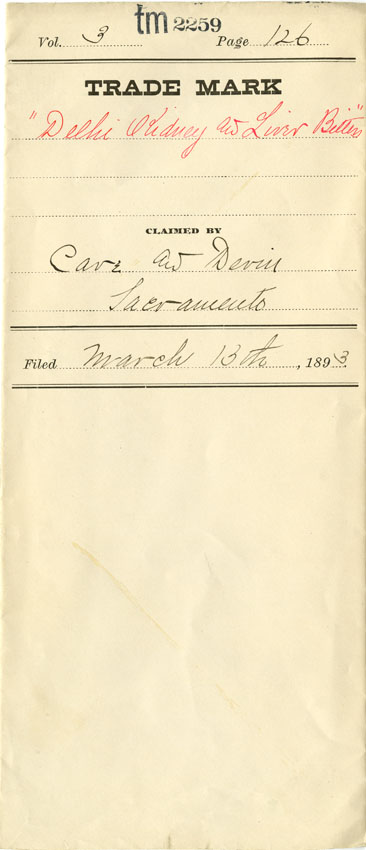 tm 2259
Vol. 3 Page 126
TRADE MARK
"Delhi Kidney and Liver Bitters"
CLAIMED BY
Cave and Devin
Sacramento
Filed March 13th, 1893.